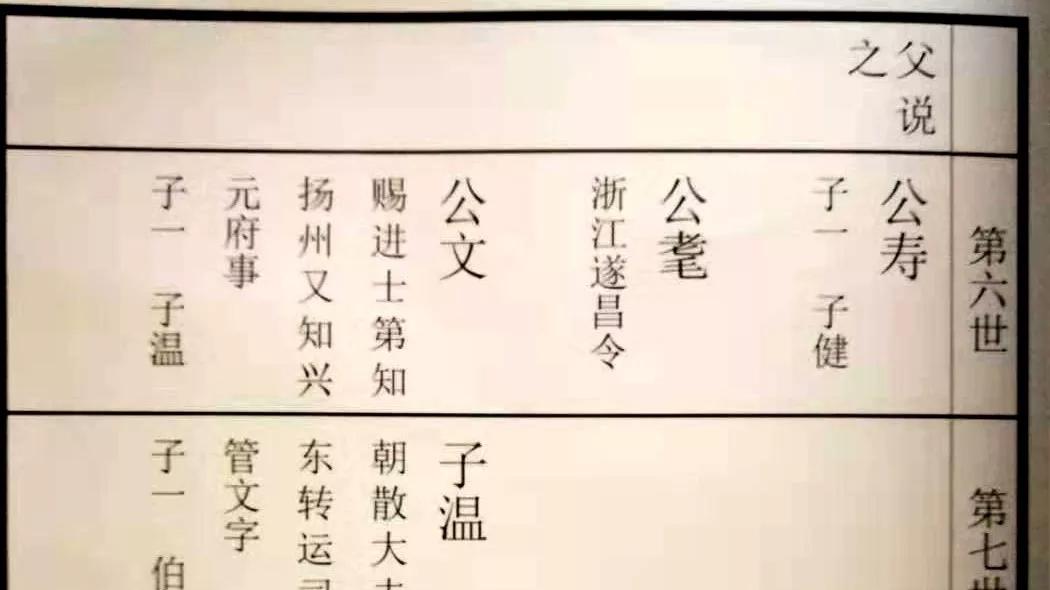 父说
之
第六世
公寿
子一 子健
公耄
浙江遂昌令
公文
赐进士第知
扬州又知兴
元府事
子一 子温
第七世
子温
朝散大夫
东转运司
管文字
子一 伯